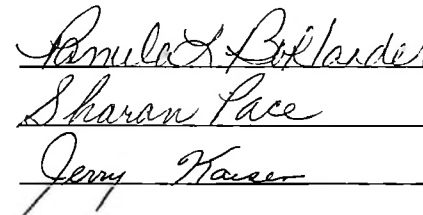 Pamela L Bollander
Sharan Pace
Jerry Kaiser